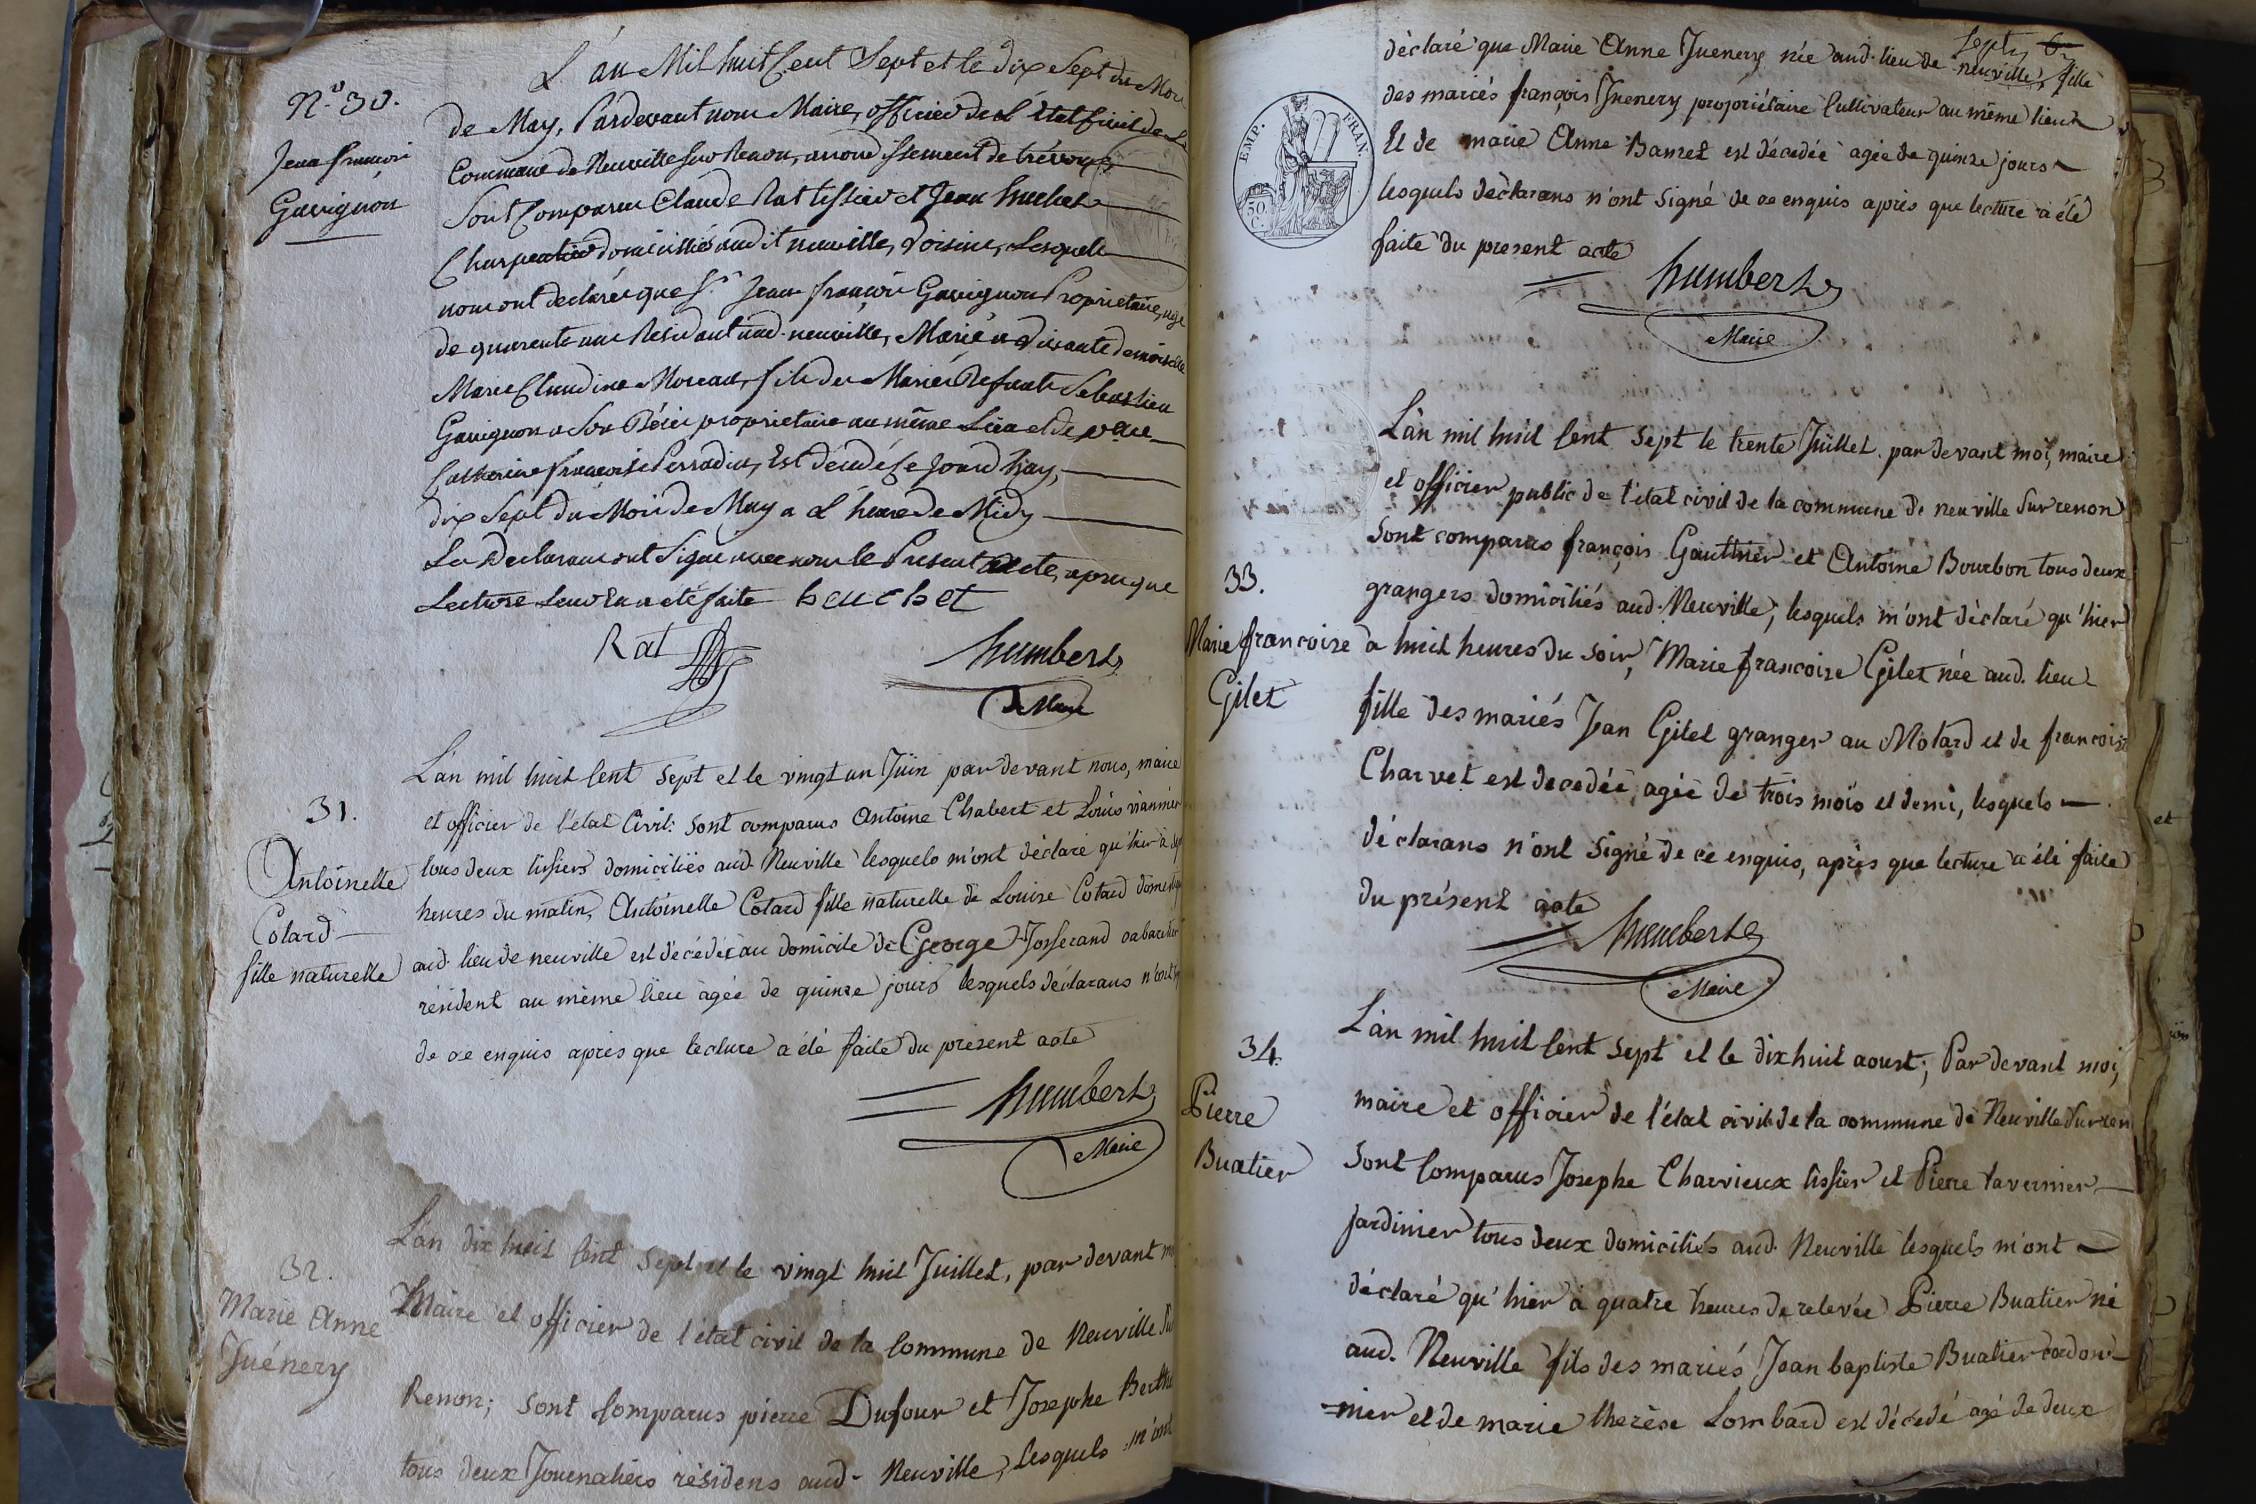 N.o 30.
Jean françois
Gavignon
L'an Mil huit Cent Sept et le dix Sept du Moi
de May, Pardevant nous Maire, officier de L'état Civil de La
Commune de Neuville sur Renon, arrondissement de trévoux
Sont Comparu Claude Rat tissier et Jean huchet
Charpentier domiciliés audit neuville, voisins, Lesquels
nous ont declarés que Sr Jean françois Gavignon Proprietaire, agé
de quarente ans Residant aud. neuville, Marié a vivante demoiselle
Marie Claudine Moreau, fils des Mariés Defunts Sebastien
Gavignon proprietaire au même Lieu et de
Catherine françoise Perradin, Est décédé Ce Jourd'huy,
dix Sept du Moi de May a L'heure de Midy
Les Declarans ont Signé avec nous le Present acte, apres que
Lecture Leur En a eté faite heuchet
Rat humbert
Maire
31.
Antoinette
Cotard
fille naturelle
L'an mil huit Cent Sept et le vingt un Juin par devant nous, maire
et officier de l'état Civil: sont comparus Antoine Chabert et Louis viannier
tous deux tissiers domiciliés aud. Neuville lesquels m'ont déclaré qu'hier à sept
heures du matin, Antoinette Cotard fille naturelle de Louise Cotard domestique
aud. lieu de neuville est décédée au domicile de George Josserand cabaretier
résident au même lieu agée de quinze jours lesquels déclarans n'ont
de ce enquis apres que lecture a été faite du présent acte
humbert
Maire
32.
Marie Anne
Juénery
L'an dix huit Cent Sept et le vingt huit Juillet, par devant
Maire et officier de l'état civil de la Commune de Neuville Sur
Renon; sont Comparus pierre Dufour et Josephe
tous deux Journaliers résidens aud. Neuville, lesquels m'ont
Sept 6
déclaré que Marie Anne Juenery née aud. lieu de neuville, fille
des mariés françois Juenery propriétaire Cultivateur au même lieu
Et de marie Anne est décedée agée de quinze jours
lesquels déclarans n'ont signé de ce enquis après que lecture a été
faite du present acte
EMP. FRAN.
50 C.
humbert
Maire
33.
Marie françoise
Gilet
L'an mil huit Cent Sept le trente Juillet par devant moi, maire
et officier public de l'état civil de la commune de neuville Sur renon
sont comparus françois Gauthier et Antoine Bourbon tous deux
grangers domiciliés aud. Neuville, lesquels m'ont déclaré qu'hier
a huit heures du soir, Marie francoise Gilet née aud. lieu
fille des mariés Jean Gilet granger au Molard et de francoise
Charvet est decedée, agée de trois mois et demi, lesquels
déclarans n'ont Signé de ce enquis, après que lecture a été faite
du présent acte
humbert
Maire
34.
Pierre
Buatier
L'an mil huit Cent Sept et le dix huit aoust; Par devant moi,
maire et officier de l'état civil de la commune de Neuville Sur ren
sont Comparus Josephe Charvieux tissier et Pierre tavernier
Jardinier tous deux domiciliés aud. Neuville lesquels m'ont
déclaré qu'hier a quatre heures de relevée Pierre Buatier né
aud. Neuville fils des mariés Jean baptiste Buatier cordon
=nier et de marie therèse Lombard est décedé agé de deux